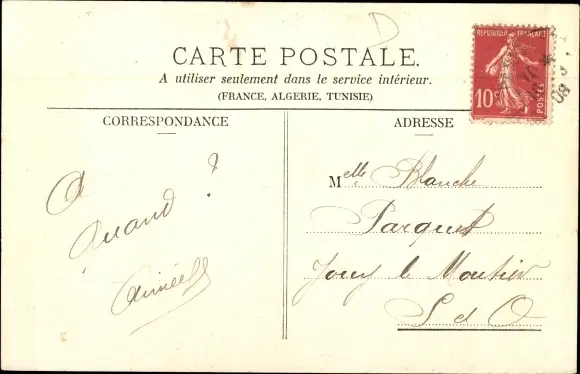 D
CARTE POSTALE.
A utiliser seulement dans le service intérieur.
(FRANCE, ALGERIE, TUNISIE)
REPUBLIQUE FRANÇAISE
10c
POSTES
08
CORRESPONDANCE
A
Quand ?
Aimée
ADRESSE
Melle Blanche
Parquet
Jouy le Moutier
S d O